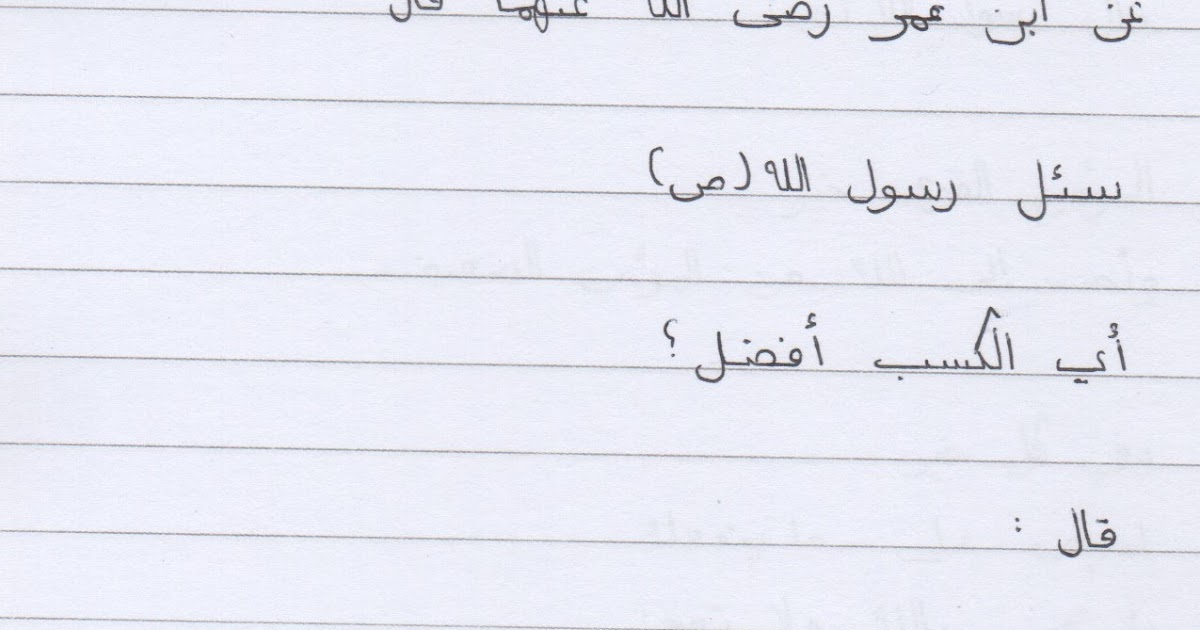 عن ابن عمر رضى الله عنهما قال
سئل رسول الله (ص)
أي الكسب أفضل؟
قال :